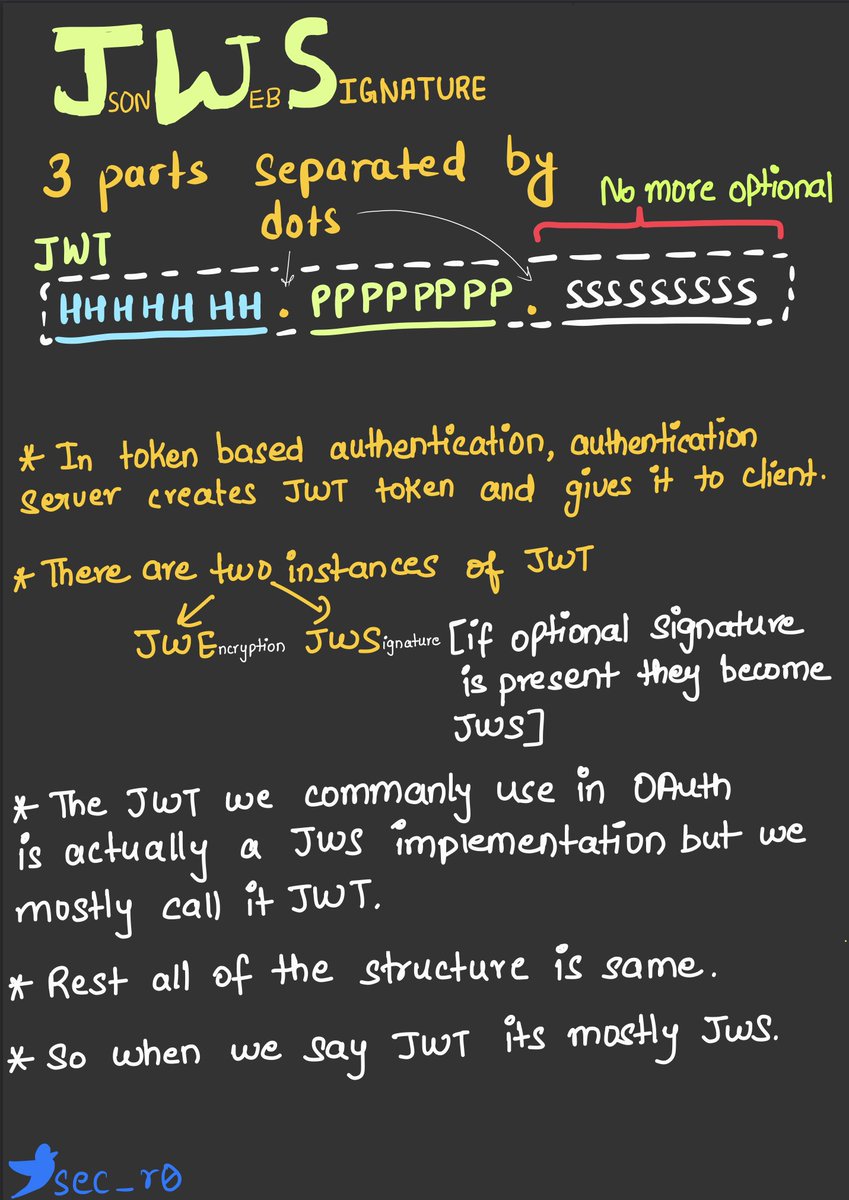 JSON WEB SIGNATURE
3 parts separated by
dots
No more optional
JWT
HHHHH HH . PPPPPPPP . SSSSSSSSS
* In token based authentication, authentication
server creates JWT token and gives it to client.
* There are two instances of JWT
JWEncryption JWSignature [if optional signature
is present they become
JWS]
* The JWT we commanly use in OAuth
is actually a JWS implementation but we
mostly call it JWT.
* Rest all of the structure is same.
* So when we say JWT its mostly JWS.
sec_r0